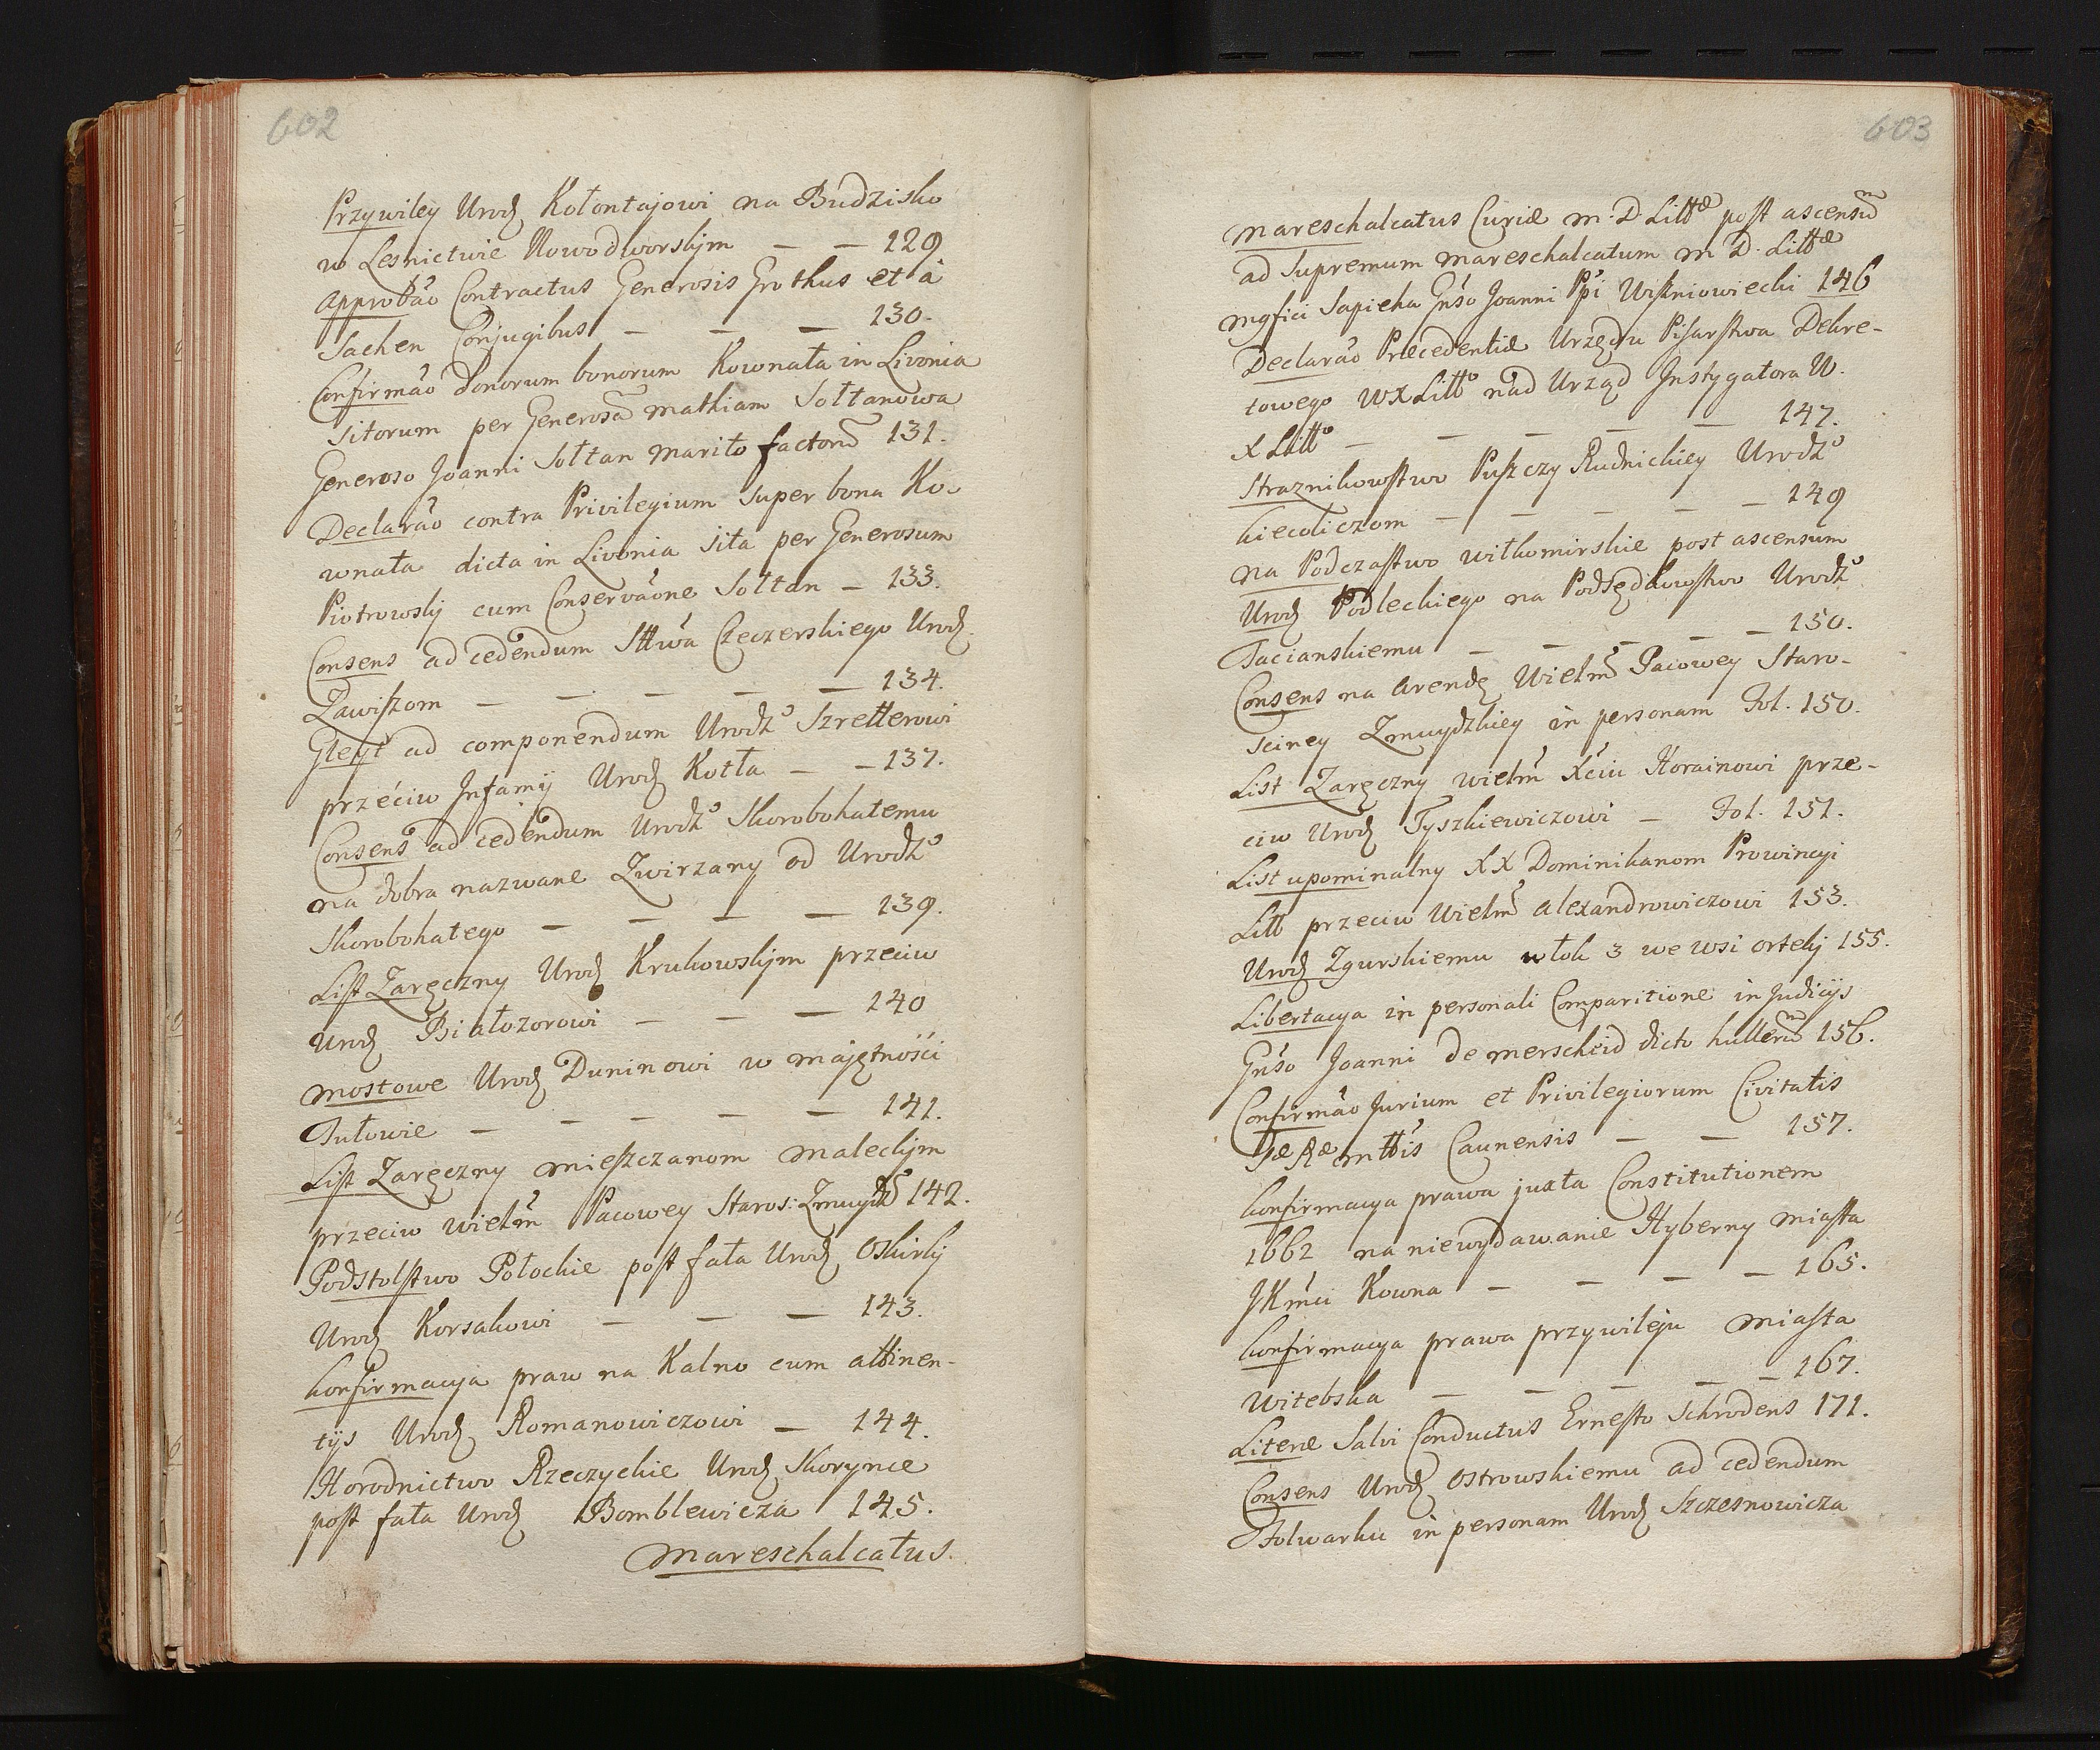 602
Przywiley Urodz Kołontajowi na Budzisko
w Lesnictwie Nowodworskim — — 129
Approbão Contractus Generosis Grothus et à
Sachen Conjugibus — — — 130.
Confirmão donorum bonorum Kownata in Livonia
sitorum per Generosã Mathiam Sołtanowa
Generoso Joanni Sołtan marito factorũ 131.
Declarão contra Privilegium super bona Ko-
wnata dicta in Livonia sita per Generosum
Piotrowskj cum Conservãone Sołtan — 133.
Consens ad cedendum Sttwa Czeczerskiego Urodz.
Zawiszom — — — — — 134.
Gleyt ad componendum Urodzo Szretterowi
przeciw Infamij Urodz Kotła — — 137.
Consens ad cedendum Urodzo Skorobohatemu
na dobra nazwane Zwirzany od Urodzo
Skorobohatego — — — — 139.
List Zaręczny Urodz Krukowskjm przeciw
Urodz Białozorowi — — — 140
Mostowe Urodz Duninowi w majętności
Tułowie — — — — — 141.
List Zaręczny mieszczanom maleckjm
przeciw wielm Pacowey Staros: Zmuydz 142.
Podstolstwo Połockie post fata Urodz Oskirkj
Urodz Korsakowi — — — 143.
Konfirmacya praw na Kalno cum attinen-
tijs Urodz Romanowiczowi — 144.
Horodnictwo Rzeczyckie Urodz Skorynce
post fata Urodz Bomblewicza 145.
Mareschalcatus.
603
Mareschalcatus Curiæ M. D. Littæ post ascensũ
ad Supremum Mareschalcatum M D. Littæ
Mgfici Sapieha Gnso Joanni Ppi Wiszniowiecki 146
Declarão Præcedentiæ Urzędu Pisarstwa Dekre-
towego WXLitto nad Urząd Instygatora W.
X Litto — — — — — 147.
Straznikowstwo Puszczy Rudnickiey Urodzo
Kiecoliczom — — — — — 149
Na Podczastwo Wiłkomirskie post ascensum
Urodz Podleckiego na Podsędkowstwo Urodzo
Tacianskiemu — — — — — 150.
Consens na Arendę Wielm Pacowey Staro-
sciney Zmuydzkiey in personam Fol. 150.
List Zaręczny wielm Xciu Horainowi prze-
ciw Urodz Tyszkiewiczowi — Fol. 151.
List upominalny XX Dominikanom Prowincyi
Litt przeciw Wielm Alexandrowiczowi 153.
Urodz Zgurskiemu włok 3 we wsi ortelj 155.
Libertacya in personali Comparitione in Judicijs
Gnso Joanni de merscheid dicto hullerũ 156.
Confirmão Jurium et Privilegiorum Civitatis
Sæ Ræ Mttis Caunensis — — 157.
Konfirmacya prawa juxta Constitutionem
1662 na niewydawanie Hyberny Miasta
JKmci Kowna — — — — 165.
Konfirmacya prawa przywileju Miasta
Witebska — — — — — 167.
Literæ Salvi Conductus Ernesto Schrodens 171.
Consens Urodz Ostrowskiemu ad cedendum
Folwarku in personam Urodz Szczesnowicza